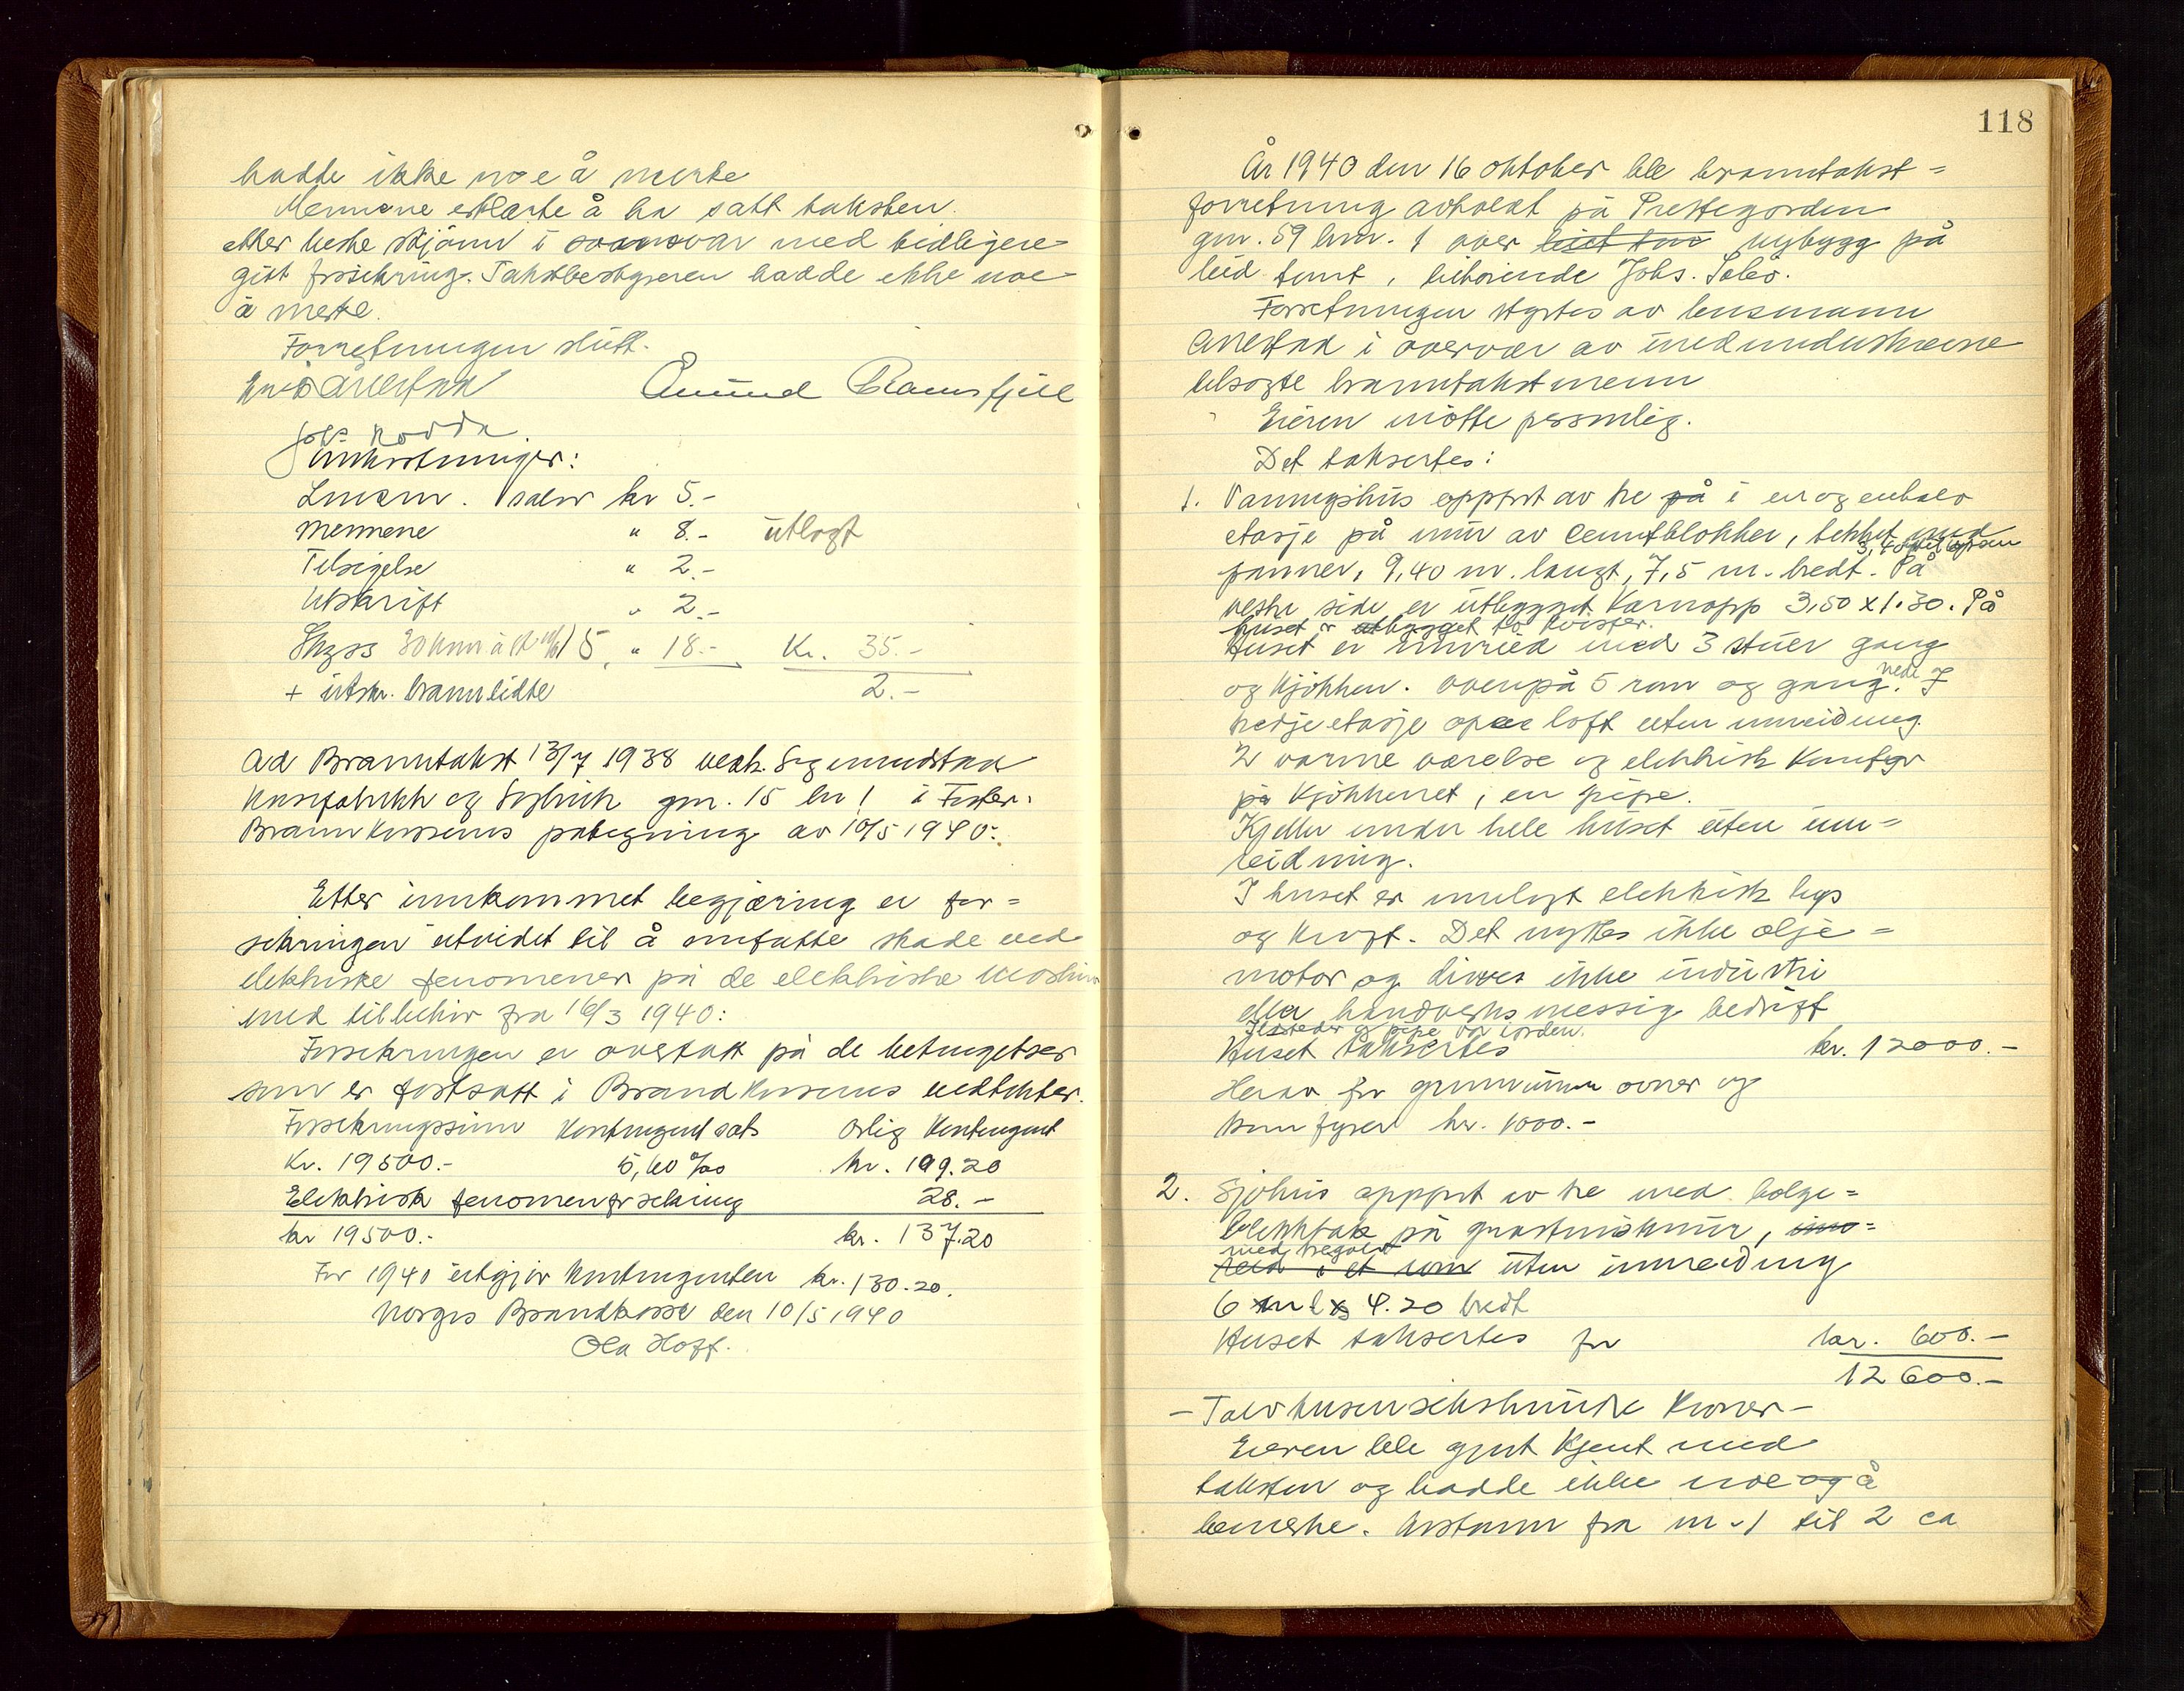 hadde ikke noe å merke
Mennene erklærte å ha satt taksten
etter beste skjönn i samsvar med tidligere
gitt forsikring. Takstbestyreren hadde ikke noe
å merke.
Forretningen slutt.
Årrestad Åmund Ramsfjell
Johs Rodda
Omkostninger:
Lensm. salær kr 5.-
Mennene " 8.- utlagt
Tilsigelse " 2.-
Utskrift " 2.-
Skyss 30 km à " 18.- Kr. 35.-
+ utskr. brannlidte 2.-
Ad Branntakst 13/7 1938 vedk. Sigmundstad
Kassefabrikk og Sagbruk gnr. 15 bnr 1 i Fister.
Brannkassens påtegning av 10/5 1940:
Etter innkommet begjæring er for=
sikringen utvidet til å omfatte skade ved
elektriske fenomener på de elektriske maskiner
med tilbehör fra 16/3 1940:
Forsikringen er overtatt på de betingelser
som er fastsatt i Brandkassens vedtekter.
Forsikringssum Kontingent sats Årlig Kontingent
Kr. 19500.- 5,60 ‰ kr. 109.20
Elektrisk fenomenforsikring 28.-
kr 19500.- kr. 137.20
For 1940 utgjör Kontingenten kr. 130.20.
Norges Brandkasse den 10/5 1940
Ola Hoff.
118
År 1940 den 16 oktober ble branntakst=
forretning avholdt på Prestegorden
gnr. 59 bnr. 1 over nybygg på
leid tomt, tilhörende Johs. Solev.
Forretningen styrtes av lensmann
Årrestad i overvær av medundeskrevne
tilsagte branntakstmenn
Eieren mötte personlig.
Det taksertes:
1. Vaningshus oppfört av tre på i en og enhalv
etasje på mur av cemtblokker, tekket med
panner, 9,40 m. langt, 7,5 m. bredt. På
vestre side er utbygget Karnapp 3,50 x 1.30. På
huset er utbygget to kvister.
Huset er innreid med 3 stuer gang
og kjökken. nede
ovenpå 5 rom og gang. I
tredje etasje opne loft uten innreidning.
2 varme værelse og elektrisk Komfyr
på kjökkenet, en pipe.
Kjeller under hele huset uten inn=
reidning.
I huset er innlagt elektrisk lys
og kraft. Det nyttes ikke olje=
motor og drives ikke industri
eller handverksmessig bedrift
Ildsteder og pipe var iorden.
Huset taksertes kr. 12000.-
Herav for grunnmur ovner og
Komfyrer kr. 1000.-
2. Sjöhus oppfört av tre med bolge=
blekktak på gråsteinsmur, inn=
med tregolv
reid i et rom uten innreidning
6 m l x 4.20 bredt
Huset taksertes for kr. 600.-
12600.-
- Tolvtusensekshundre Kroner -
Eieren ble gjort kjent med
taksten og hadde ikke noe og å
bemerke. Avstann fra nr. 1 til 2 ca